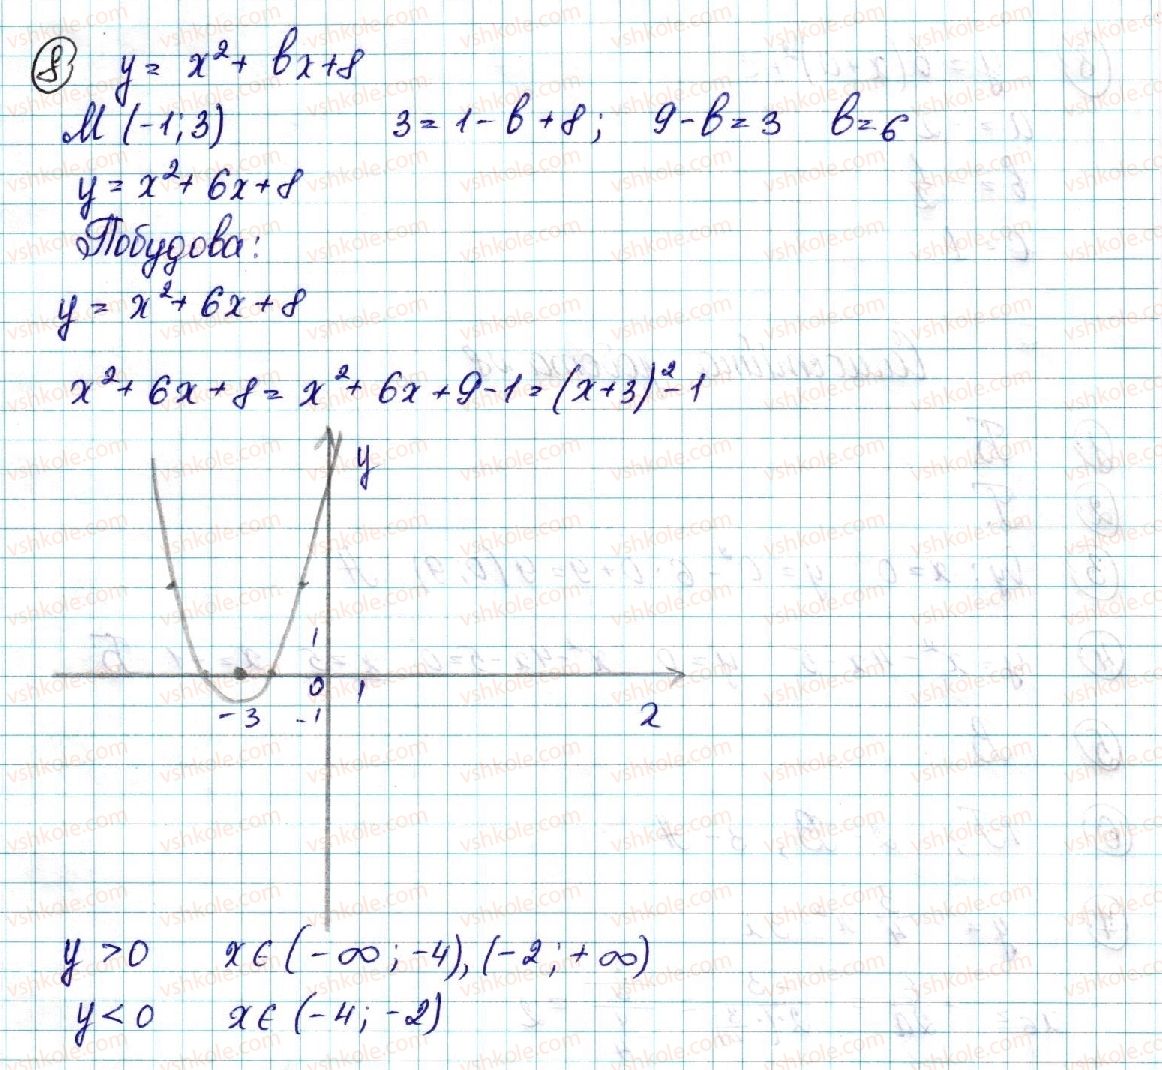 8) y = x² + bx + 8
M (-1; 3) 3 = 1 - b + 8; 9 - b = 3 b = 6
y = x² + 6x + 8
Побудова:
y = x² + 6x + 8
x² + 6x + 8 = x² + 6x + 9 - 1 = (x + 3)² - 1
y
1
0 1
-3 -1 x
y > 0 x ∈ (-∞; -4), (-2; +∞)
y < 0 x ∈ (-4; -2)
vshkole.com